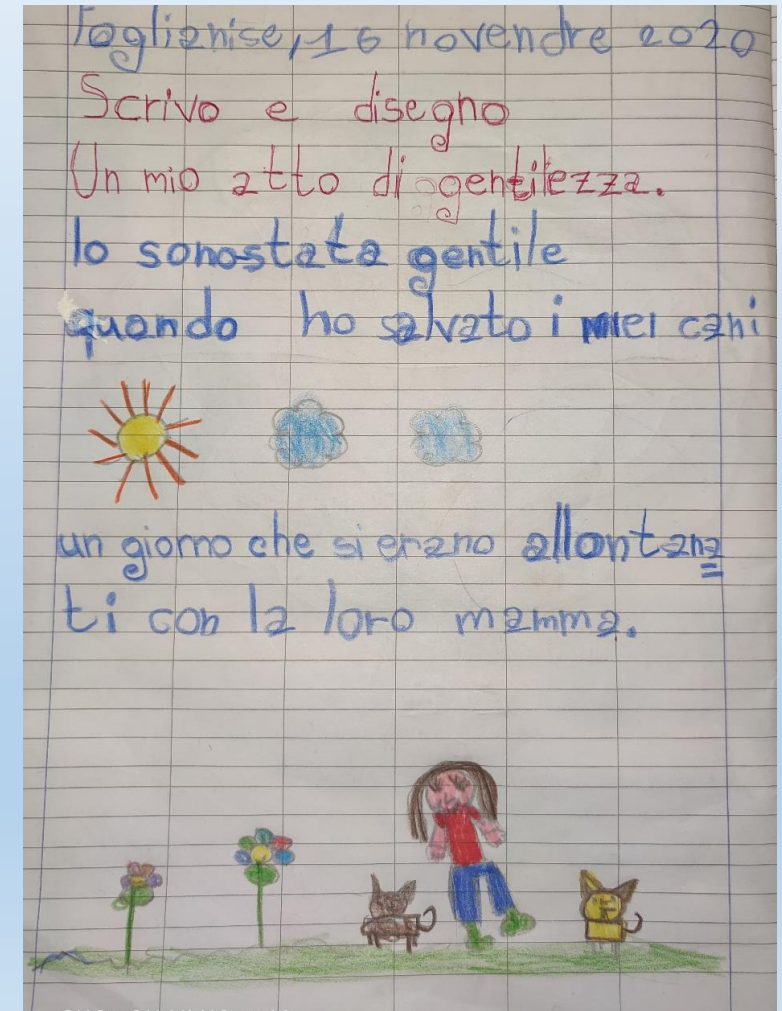 Foglianise, 16 novendre 2020
Scrivo e disegno
Un mio atto di gentilezza.
Io sonostata gentile
quando ho salvato i miei cani
un giorno che si erano allontana
ti con la loro mamma.